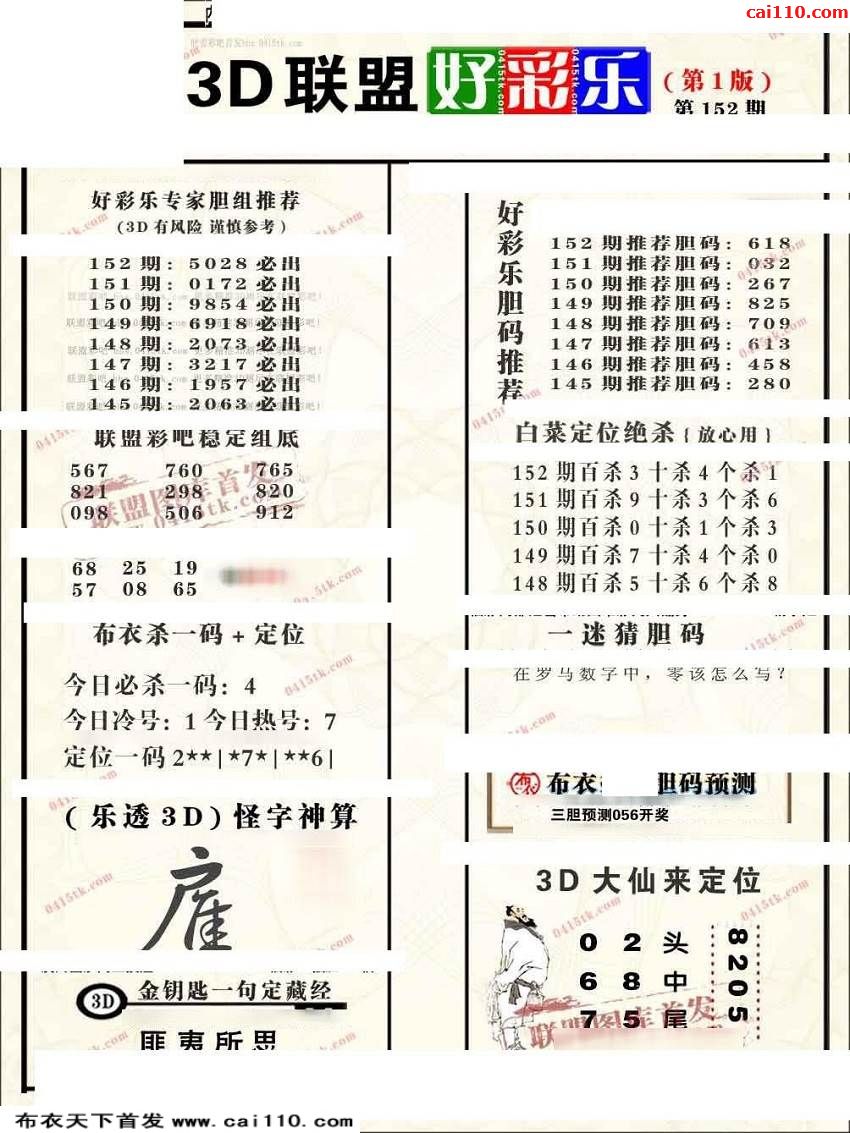 cai110.com
3D联盟好彩乐(第1版)
第152期
好彩乐专家胆组推荐
(3D有风险 谨慎参考)
152期:5028必出
151期:0172必出
150期:9854必出
149期:6918必出
148期:2073必出
147期:3217必出
146期:1957必出
145期:2063必出
联盟彩吧稳定组底
567 760 765
821 298 820
098 506 912
68 25 19
57 08 65
布衣杀一码+定位
今日必杀一码:4
今日冷号:1今日热号:7
定位一码2**|*7*|**6|
(乐透3D)怪字神算
3D 金钥匙一句定藏经
匪夷所思
好彩乐胆码推荐
152期推荐胆码:618
151期推荐胆码:032
150期推荐胆码:267
149期推荐胆码:825
148期推荐胆码:709
147期推荐胆码:613
146期推荐胆码:458
145期推荐胆码:280
白菜定位绝杀{放心用}
152期百杀3十杀4个杀1
151期百杀9十杀3个杀6
150期百杀0十杀1个杀3
149期百杀7十杀4个杀0
148期百杀5十杀6个杀8
一迷猜胆码
在罗马数字中,零该怎么写?
布衣 胆码预测
三胆预测056开奖
3D大仙来定位
0 2头
6 8中
7 5尾
8205
联盟图库首发
0415tk.com
布衣天下首发 www.cai110.com